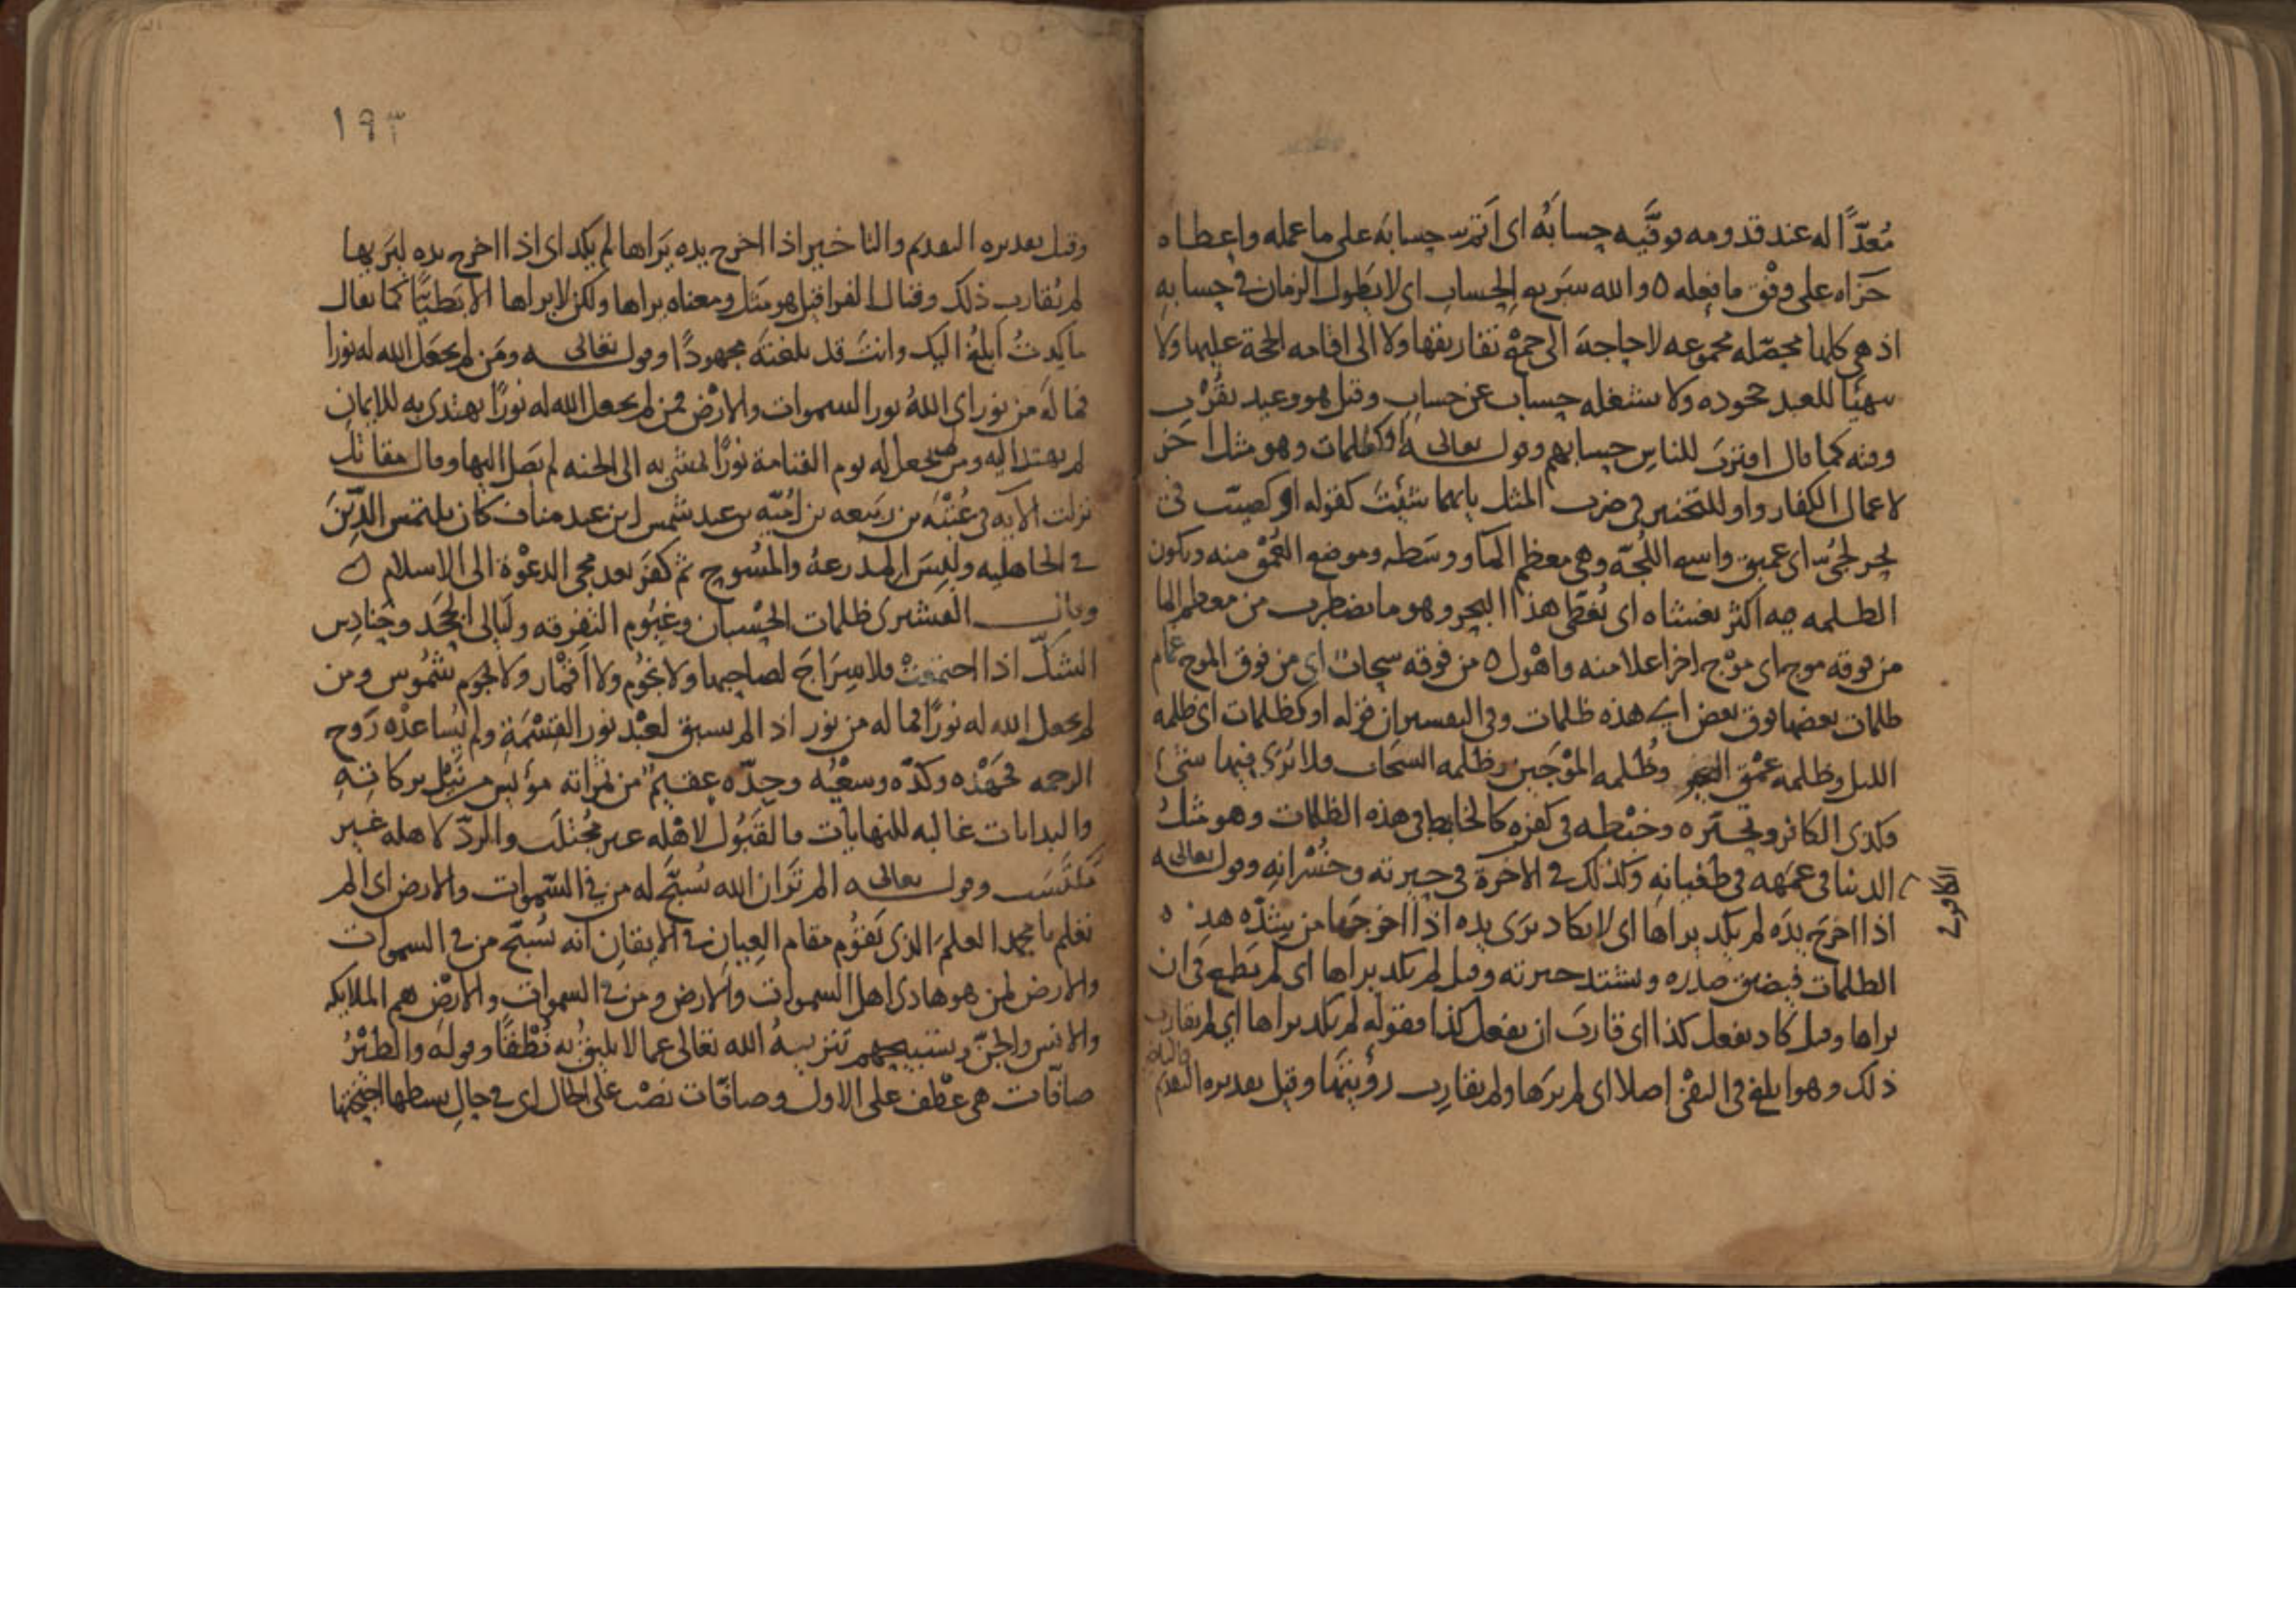 مُعدًّا له عند قدومه فوفَّيه حسابَهُ اى اَتمّ حسابَه على ما عمله واعطاه
جَزَاه على وفْق ما فعله ٥ والله سَريع الحساب اى لا يَطول الزمان فى حسابه
اذ هى كلها محصّله مجموعه لا حاجة الى جمع تفاريقها ولا الى اقامه الحجة عليها ولا
يتهيّا للعبد جحوده ولا يشغله حساب عن حساب وقيل هو وعيد بقُرْب
وقته كما قال اقتربَ للناسِ حسابهم وقول تعالى اَوْ كظلمات وهو مثل اخر
لاعمال الكفار واو للتخيير فى ضرب المثل بايهما شئتَ كقوله او كصيّب فى
بحر لجىّ اى عميق واسع اللُجّة وهى معظم الما ووسَطه وموضع العُمْق منه ويكون
الظلمه فيه اكثر يغشاه اى يُغطّى هذا البحر وهو ما يضطرب من معظم الما
من فوقه موج اى مَوْج اخر اعلا منه واهْول ٥ من فوقه سحاب اى من فوق الموج غمام
ظلمات بعضها فوق بعض اى هذه ظلمات وفى التفسير ان قوله او كظلمات اى ظلمه
الليل وظلمه عمْق البحر وظُلمه المَوْجَين وظلمه السحاب فلا يُرَى فيها شئ
وكذى الكافر وتحيّره وخبْطه فى كفره كالخابط فى هذه الظلمات وهو مثلُ
الكافر فى
الدنيا فى عَمَهه فى طغيانه وكذلك فى الاخرة فى حيرته وخُسْرانِه وقول تعالى
اذا اخرجَ يدَه لم يكد يراها اى لا يكاد يرَى يده اذا اخرجها من شدّه هذه
الظلمات فيضيق صدره وتشتد حيرته وقيل لم يكد يراها اى لم يَطمع فى ان
يراها وقيل كاد يفعل كذا اى قاربَ ان يفعل كذا فقوله لم يكد يراها اى لم يقارب
ذلك وهو ابلغ فى النفْى اصلا اى لم يرَها ولم يقارب رؤيتَها وقيل تقديره التقديم
والتاخير
١٩٣
وقيل تقديره التقديم والتاخير اذا اخرج يده يَراها لم يكد اى اذا اخرج يده ليَريها
لم يُقارب ذلك وقال الفرا قيل هو مَثَل ومعناه يراها ولكن لا يراها الا بَطيّا كما يقال
ما كِدتُ اَبلغُ اليك وانتَ قد بلغتَه مجهودًا وقول تعالى ومَن لم يجعل الله له نورا
فما لَه من نور اى اللهُ نور السموات والارض فمن لم يجعل الله له نورًا يهتدى به للايمان
لم يهتد اليه ومن لم يجعل له يوم القيامة نورًا لمشى به الى الجنه لم يصَل اليها وقال مقاتل
نزلت الايه فى عُتبَه بن ربيعه بن اُميّه بن عبد شمس ابن عبد مناف كان يلتمس الدّينَ
فى الجاهليه ولبسَ المدرعةُ والمُسوح ثم كفرَ بعد مجى الدعْوة الى الاسلام ٥
وقال القشيرى ظلمات الحُسْبان وغيُوم التفرقه ولَيالى الجَحَد وحَنادِس
الشكّ اذا اجتمعتْ فلا سِرَاجَ لصاحبها ولا نجُوم ولا اَقْمار ولا نجوم شمُوس ومن
لم يجعل الله له نورًا فما له من نور اذ الم يسبق لعبْد نور القِسْمَةِ ولم يُساعدْه رَوح
الرحمه فجَهْده وكدّه وسعْيُه وجِدّه عقيم من ثمراته مؤيس من نَيْل بركاتهِ
والبدايات غالبه للنهايات فالقَبُول لاهْله غير مجُتلَب والردّ لاهله غير
مكتسَب وقول تعالى الم ترَ ان الله يُسبّح له من فى السّموات والارض اى الم
تعلم يا محمد العلمَ الذى يَقوُم مقام العِيان فى الايقانِ انه يُسبّح من فى السموات
والارض لمن هو هادى اهل السموات والارض ومن فى السموات والارض هم الملايكه
والانس والجنّ وتسبيحهم تنزيهُ الله تعالى عما لا يليقُ به نُطْقًا وقوله والطيْرُ
صافّات هى عطْف على الاول وصافّات نصْب على الحال اى فى حالِ بسطها اجنحتها